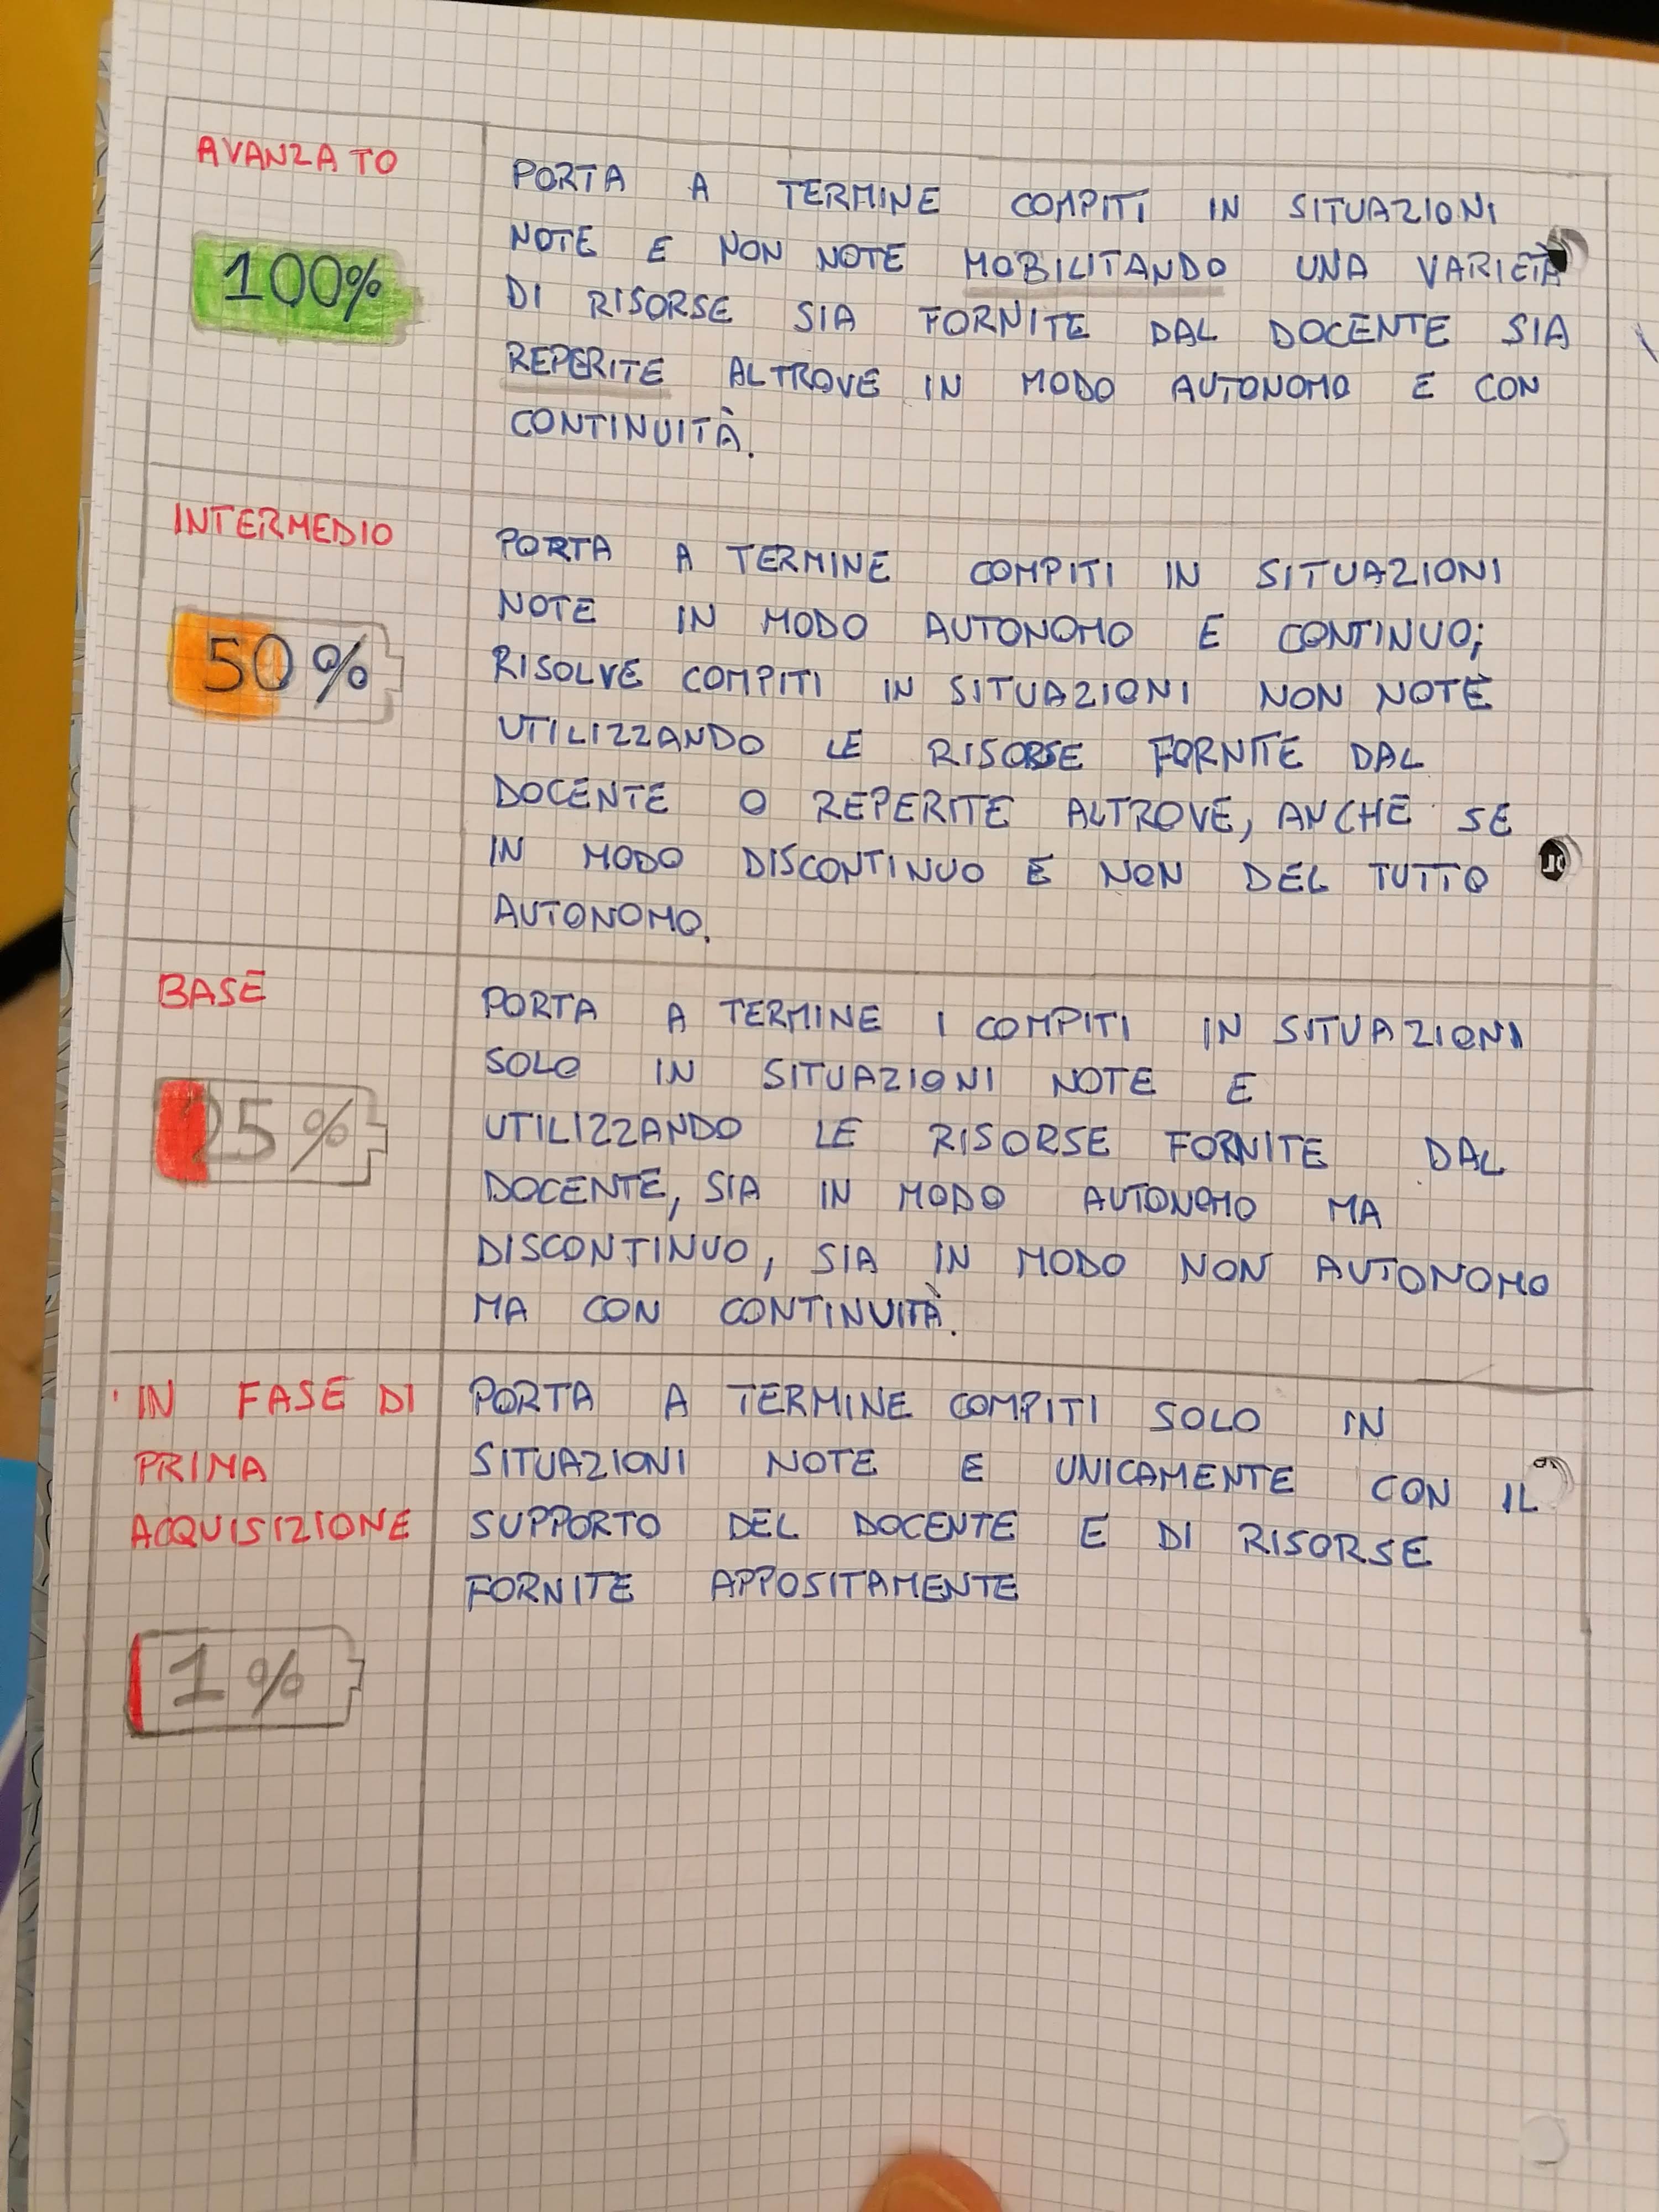 AVANZATO
100%
PORTA A TERMINE COMPITI IN SITUAZIONI
NOTE E NON NOTE MOBILITANDO UNA VARIETÀ
DI RISORSE SIA FORNITE DAL DOCENTE SIA
REPERITE ALTROVE IN MODO AUTONOMO E CON
CONTINUITÀ.
INTERMEDIO
50%
PORTA A TERMINE COMPITI IN SITUAZIONI
NOTE IN MODO AUTONOMO E CONTINUO;
RISOLVE COMPITI IN SITUAZIONI NON NOTE
UTILIZZANDO LE RISORSE FORNITE DAL
DOCENTE O REPERITE ALTROVE, ANCHE SE
IN MODO DISCONTINUO E NON DEL TUTTO
AUTONOMO.
BASE
25%
PORTA A TERMINE I COMPITI IN SITUAZIONI
SOLO IN SITUAZIONI NOTE E
UTILIZZANDO LE RISORSE FORNITE DAL
DOCENTE, SIA IN MODO AUTONOMO MA
DISCONTINUO, SIA IN MODO NON AUTONOMO
MA CON CONTINUITÀ.
IN FASE DI
PRIMA
ACQUISIZIONE
1%
PORTA A TERMINE COMPITI SOLO IN
SITUAZIONI NOTE E UNICAMENTE CON IL
SUPPORTO DEL DOCENTE E DI RISORSE
FORNITE APPOSITAMENTE